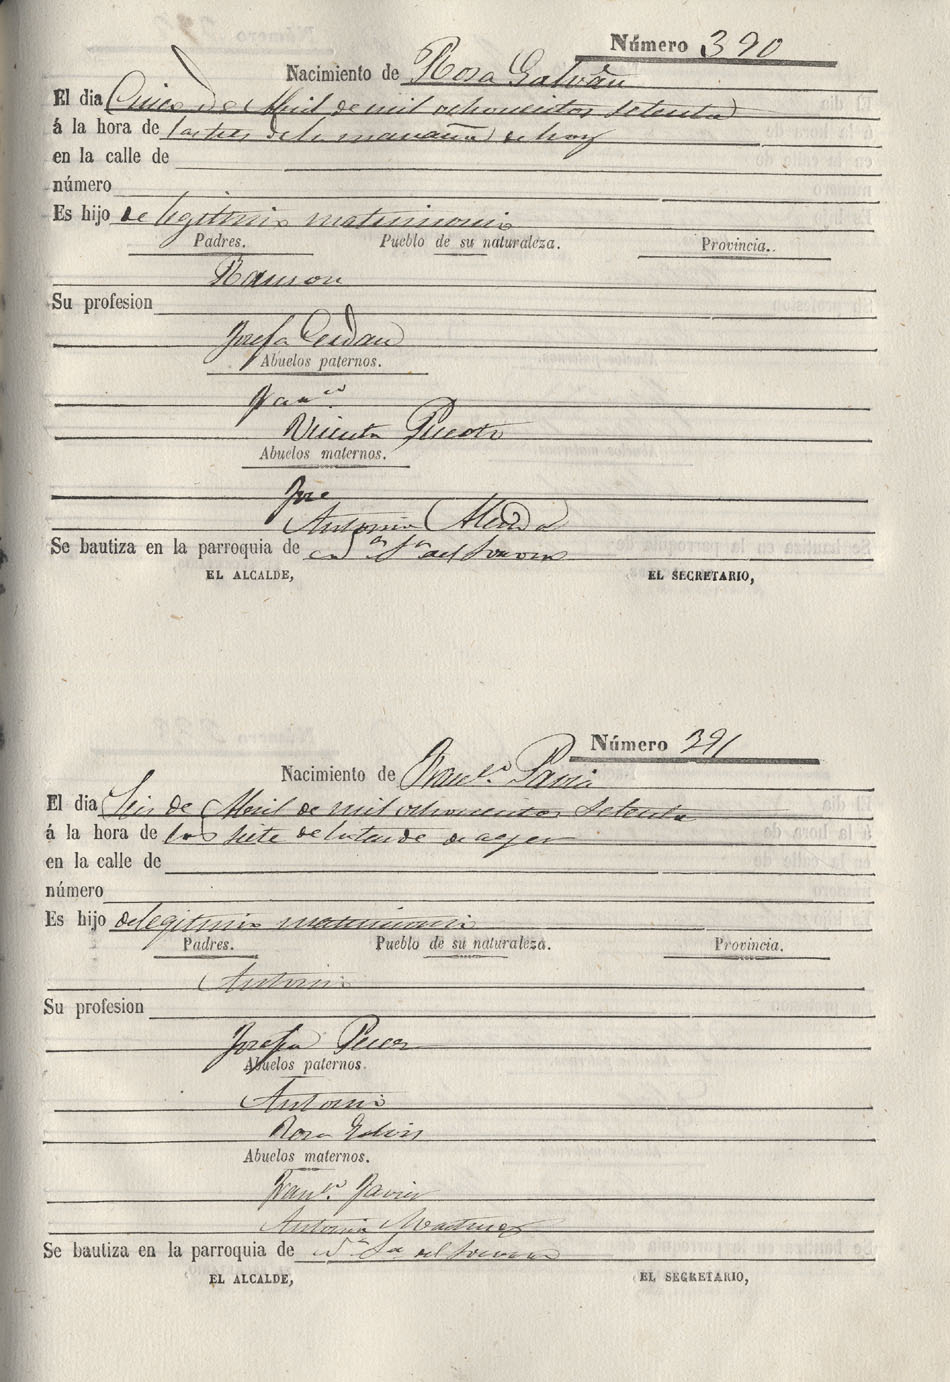 Número 390
Nacimiento de Rosa Galván
El dia Cinco de Abril de mil ochocientos setenta
á la hora de las tres de la mañana de hoy
en la calle de
número
Es hijo de legitimo matrimonio
Padres. Pueblo de su naturaleza. Provincia.
Ramon
Su profesion
Josefa
Abuelos paternos.
Franco
Vicenta
Abuelos maternos.
Jose
Antonia
Se bautiza en la parroquia de
EL ALCALDE, EL SECRETARIO,
Número 391
Nacimiento de
El dia Seis de Abril de mil ochocientos setenta
á la hora de las siete de la tarde de ayer
en la calle de
número
Es hijo de legitimo matrimonio
Padres. Pueblo de su naturaleza. Provincia.
Antonio
Su profesion
Josefa
Abuelos paternos.
Antonio
Rosa
Abuelos maternos.
Javier
Antonia Martinez
Se bautiza en la parroquia de
EL ALCALDE, EL SECRETARIO,